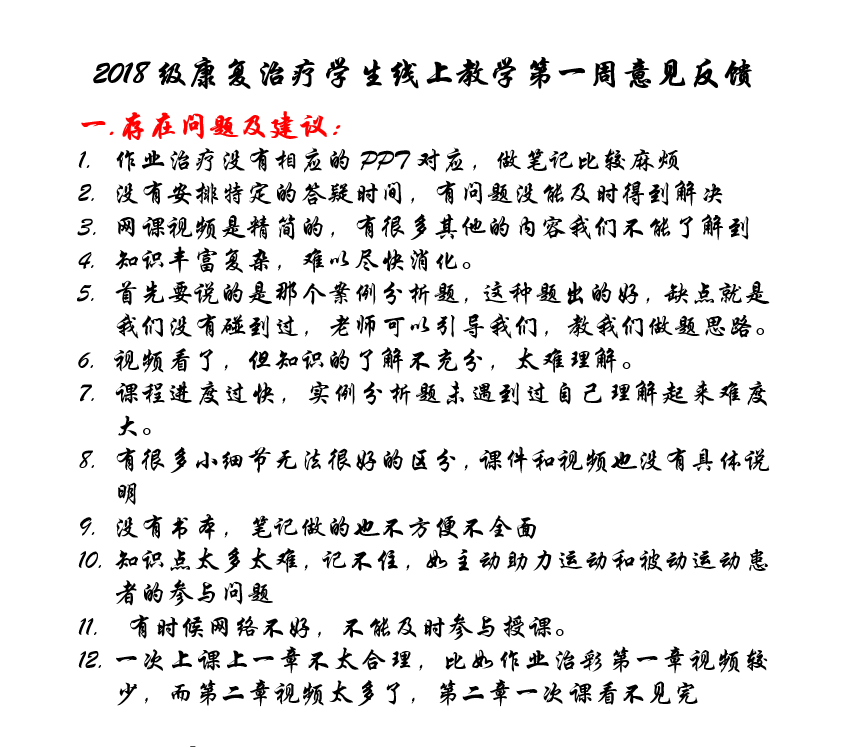 2018级康复治疗学生线上教学第一周意见反馈
一.存在问题及建议：
1. 作业治疗没有相应的PPT对应，做笔记比较麻烦
2. 没有安排特定的答疑时间，有问题没能及时得到解决
3. 网课视频是精简的，有很多其他的内容我们不能了解到
4. 知识丰富复杂，难以尽快消化。
5. 首先要说的是那个案例分析题，这种题出的好，缺点就是
我们没有碰到过，老师可以引导我们，教我们做题思路。
6. 视频看了，但知识的了解不充分，太难理解。
7. 课程进度过快，实例分析题未遇到过自己理解起来难度
大。
8. 有很多小细节无法很好的区分，课件和视频也没有具体说
明
9. 没有书本，笔记做的也不方便不全面
10. 知识点太多太难，记不住，如主动助力运动和被动运动患
者的参与问题
11. 有时候网络不好，不能及时参与授课。
12. 一次上课上一章不太合理，比如作业治彩第一章视频较
少，而第二章视频太多了，第二章一次课看不见完